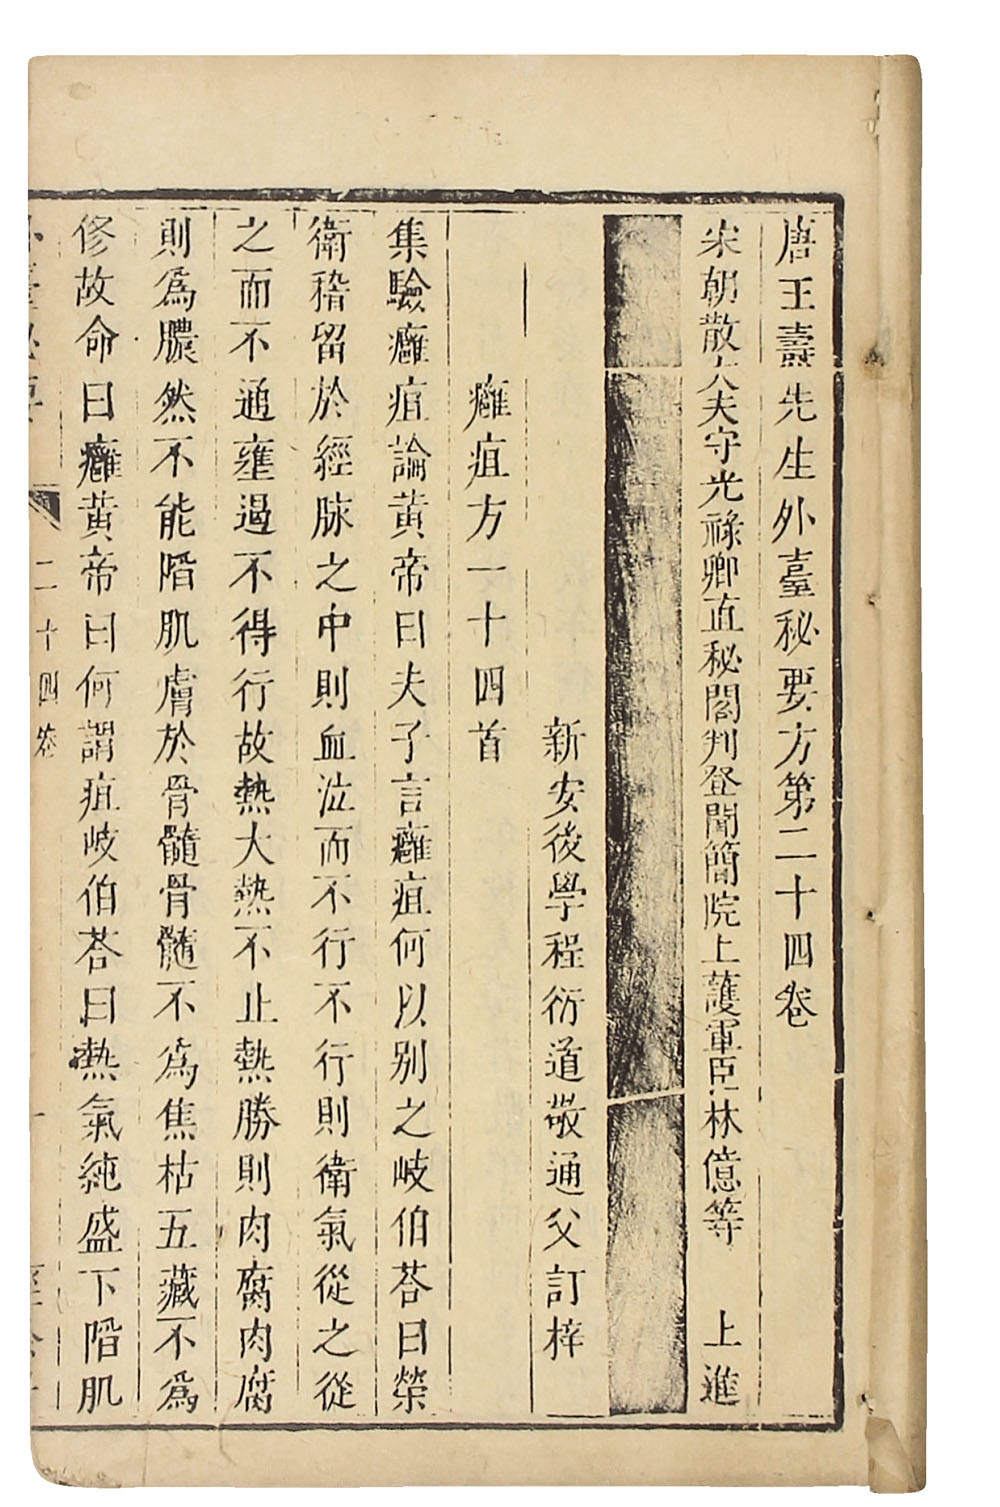 唐王燾先生外臺秘要方第二十四卷
宋朝散大夫守光祿卿直秘閣判登聞簡院上護軍臣林億等　上進
新安後學程衍道敬通父訂梓
癰疽方一十四首
集驗癰疽論黃帝曰夫子言癰疽何以別之岐伯荅曰榮
衛稽留於經脉之中則血泣而不行不行則衛氣從之從
之而不通壅遏不得行故熱大熱不止熱勝則肉腐肉腐
則爲膿然不能陷肌膚於骨髓骨髓不爲焦枯五藏不爲
修故命曰癰黃帝曰何謂疽岐伯荅曰熱氣純盛下陷肌
二十四卷